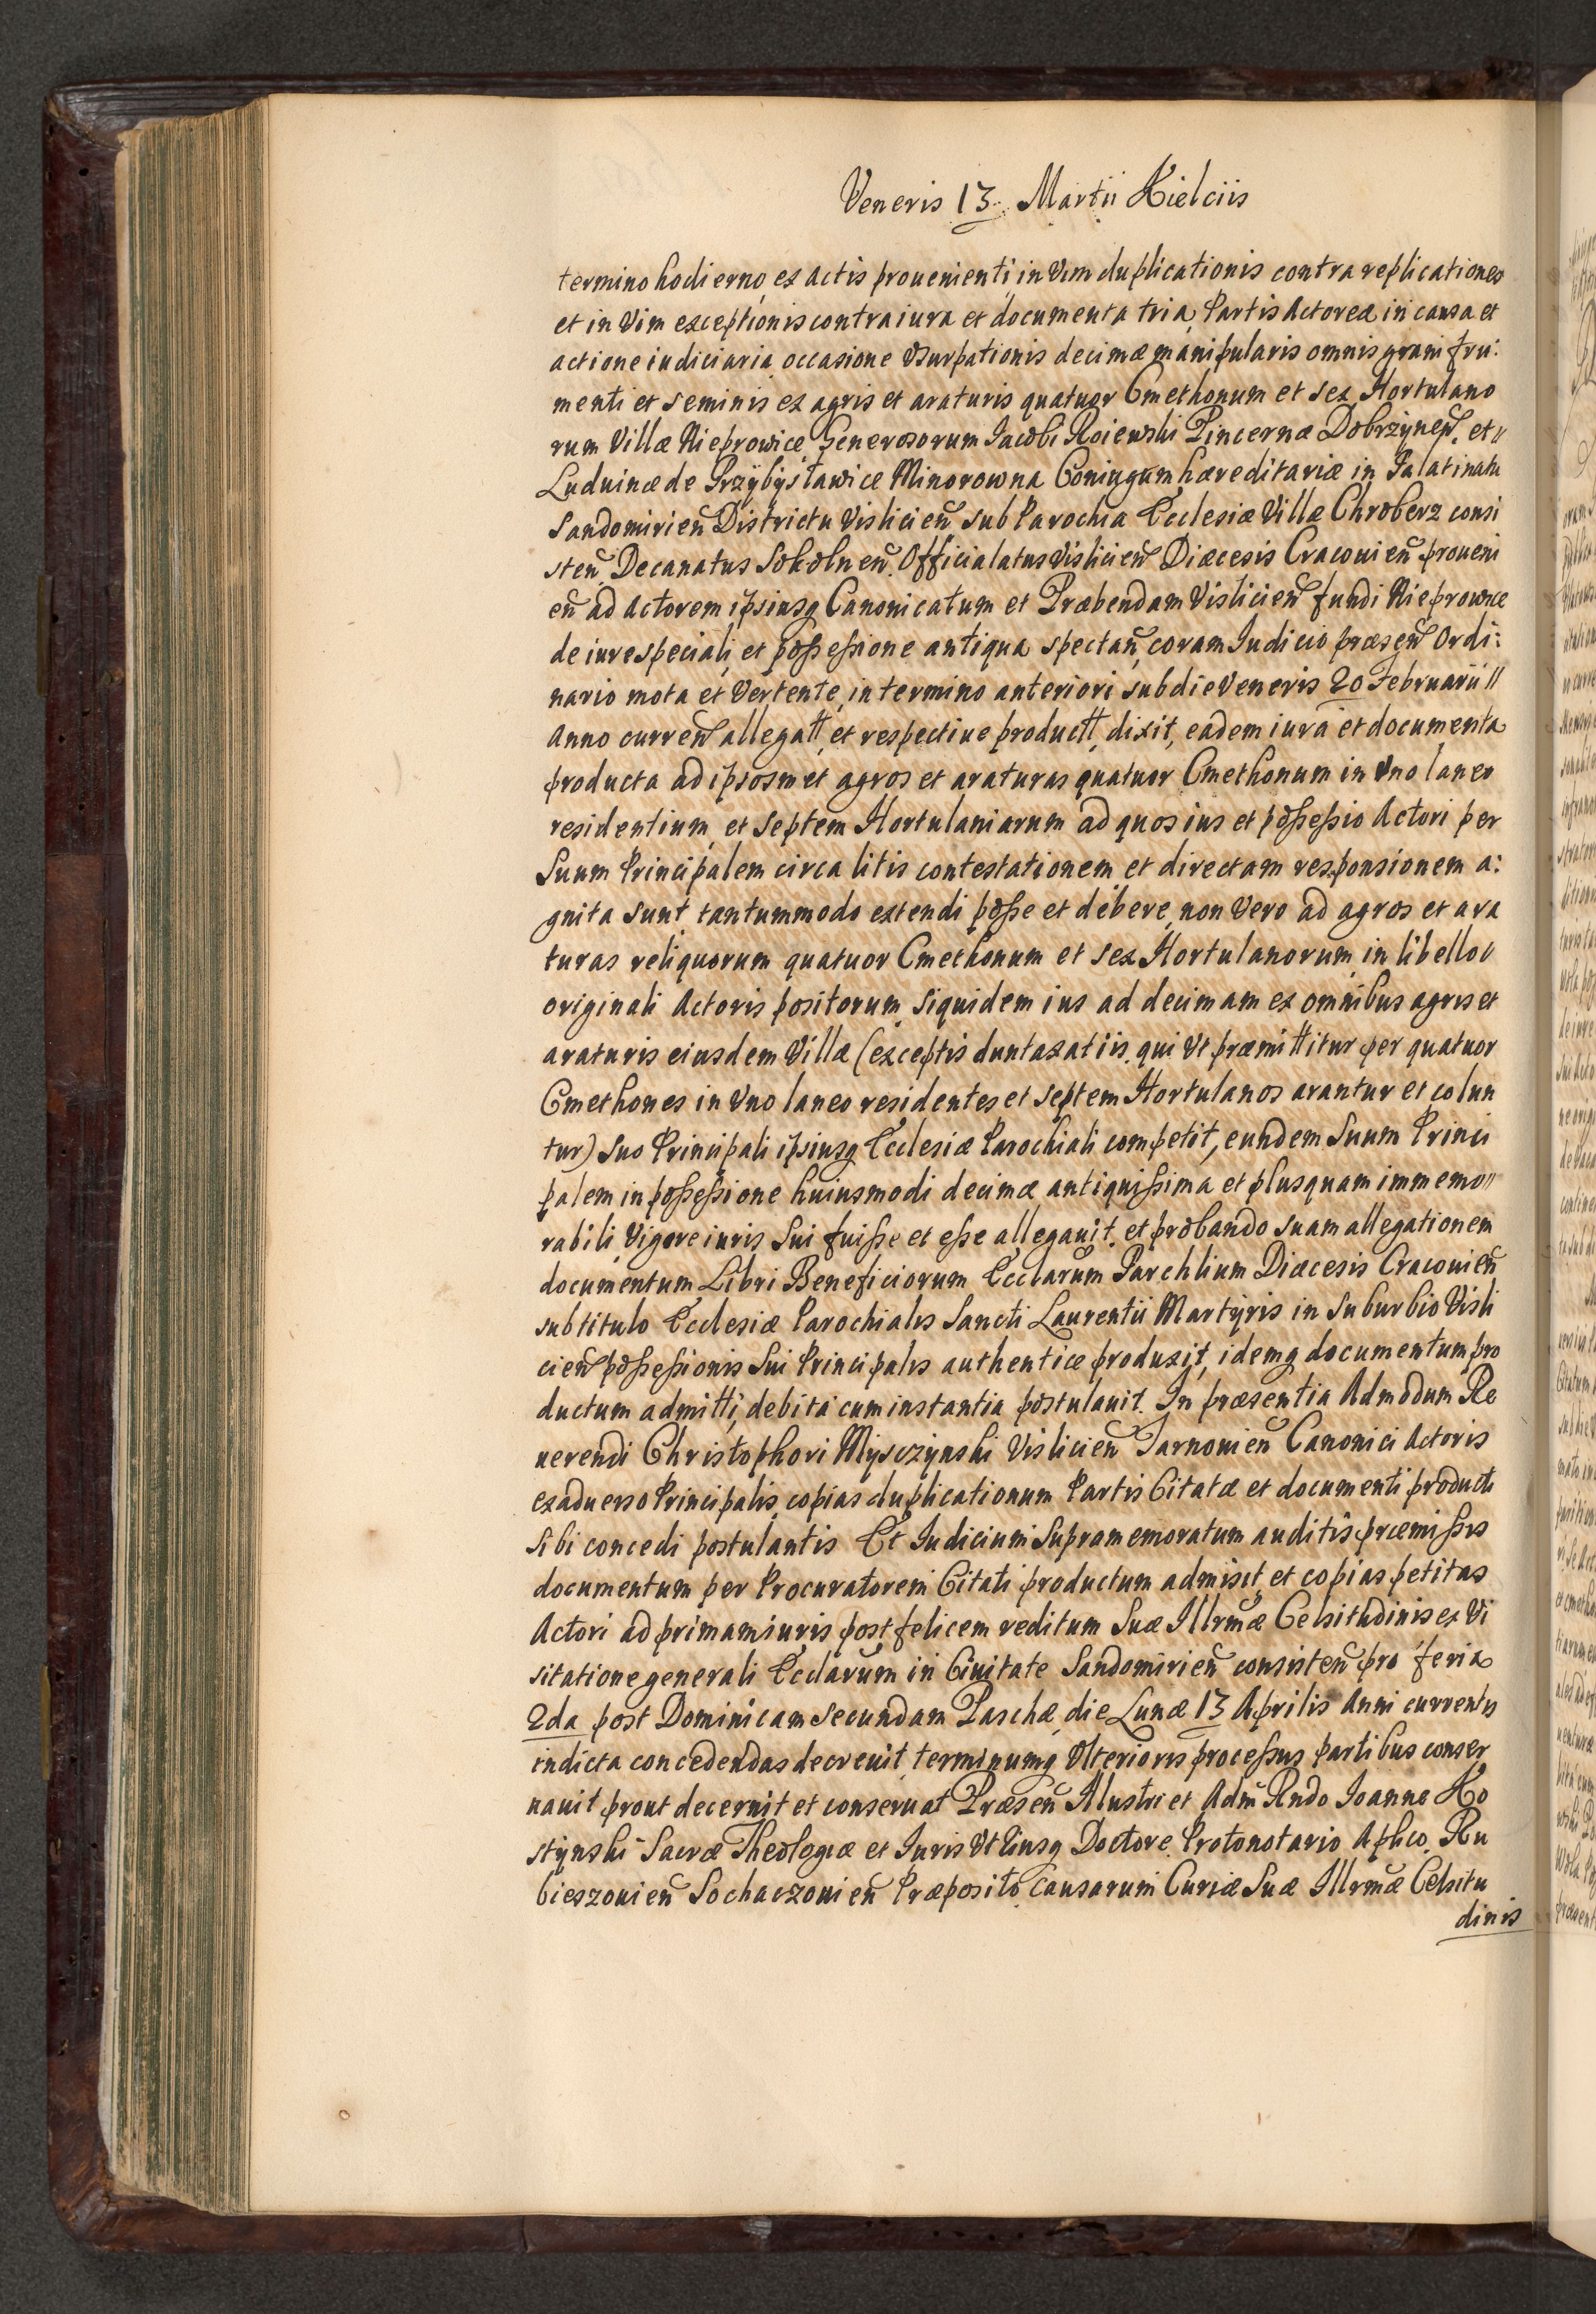 Veneris 13. Martii Kielciis
termino hodierno ex actis prouenienti in Vim duplicationis contra replicationes
et in Vim exceptionis contra iura et documenta tria Partis Actoreæ in causa et
actione iudiciaria occasione Vsurpationis decimæ manipularis omnis grani fru:
menti et seminis ex agris et araturis quatuor Cmethonum et sex Hortulano
rum Villæ Nieprowice Generosorum Jacobi Roiewski Pincernæ Dobrzyneñ. et //
Luduinæ de Przÿbÿsławice Minorowna Coniugum hæreditariæ in Palatinatu
Sandomirieñ Districtu Vislicieñ sub Parochia Ecclesiæ Villæ Chroberz consi
steñ Decanatus Sokolneñ Officialatus Vislicieñ Diæcesis Cracouieñ proueni
eñ ad Actorem ipsiusq Canonicatum et Præbendam Vislicieñ fundi Nieprowice
de iure speciali et possessione antiqua spectañ, coram Iudicio præseñ Ordi:
nario mota et Vertente, in termino anteriori sub die Veneris 20 Februarii //
Anno curreñ allegatt, et respectiue productt, dixit, eadem iura et documenta
producta ad ipsosmet agros et araturas quatuor Cmethonum in Vno laneo
residentium, et Septem Hortulaniarum ad quos ius et possessio Actori per
Suum Principalem circa litis contestationem et directam responsionem a:
gnita sunt tantummodo extendi posse et debere, non Vero ad agros et ara
turas reliquorum quatuor Cmethonum et sex Hortulanorum in libello
originali Actoris positorum, Siquidem ius ad decimam ex omnibus agris et
araturis eiusdem Villæ (exceptis duntaxat iis qui Vt præmittitur per quatuor
Cmethones in Vno laneo residentes et septem Hortulanos arantur et colun
tur) Suo Principali ipsiusq Ecclesiæ Parochiali competit, eundem Suum Princi
palem in possessione huiusmodi decimæ antiquissima et plusquam immemo //
rabili Vigore iuris Sui fuisse et esse allegauit. et probando suam allegationem
documentum Libri Beneficiorum Ecclarum Parchlium Diæcesis Cracouieñ
sub titulo Ecclesiæ Parochialis Sancti Laurentii Martÿris in Suburbio Visli
cieñ possessionis Sui Principalis authentice produxit, idemq documentum pro
ductum admitti, debita cum instantia postulauit. In præsentia Admodum Re
uerendi Christophori Mÿsczÿnski Vislicieñ Tarnouieñ Canonici Actoris
ex aduerso Principalis, copias duplicationum Partis Citatæ et documenti producti
sibi concedi postulantis Et Iudicium Supramemoratum auditis præmissis
documentum per Procuratorem Citati productum admisit, et copias petitas
Actori ad primam iuris post felicem reditum Suæ Illrmæ Celsitudinis ex Vi
sitatione generali Ecclarum in Ciuitate Sandomirieñ consisteñ pro feria
2da post Dominicam secundam Paschæ die Lunæ 13 Aprilis Anni currentis
indicta concedendas decreuit, terminumq Vlterioris processus partibus conser
uauit prout decernit et conseruat Præseñ Illustri et Adm Rndo Ioanne Ko
stÿnski Sacræ Theologiæ et Iuris Vtriusq Doctore Protonotario Aplico. Ru
bieszouieñ Sochaczouieñ Præposito Causarum Curiæ Suæ Illrmæ Celsitu
dinis